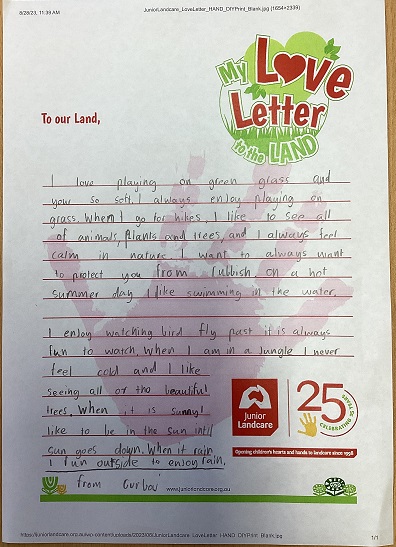 8/28/23, 11:39 AM
JuniorLandcare_LoveLetter_HAND_DIYPrint_Blank.jpg (1654×2339)
My Love
Letter
to the LAND
To our Land,
I love playing on green grass and
your so soft. I always enjoy playing on
grass. When I go for hikes, I like to see all
of animals, plants and trees, and I always feel
calm in nature. I want to always want
to protect you from rubbish on a hot
summer day I like swimming in the water.
I enjoy watching bird fly past it is always
fun to watch. When I am in a Jungle I never
feel cold and I like
seeing all of the beautiful
trees. When it is sunny I
like to be in the sun until
sun goes down. When it rain
I run outside to enjoy rain.
from
Junior
Landcare
25
CELEBRATING 25 YEARS
Opening children's hearts and hands to landcare since 1998
www.juniorlandcare.org.au
https://juniorlandcare.org.au/wp-content/uploads/2023/08/JuniorLandcare_LoveLetter_HAND_DIYPrint_Blank.jpg
1/1